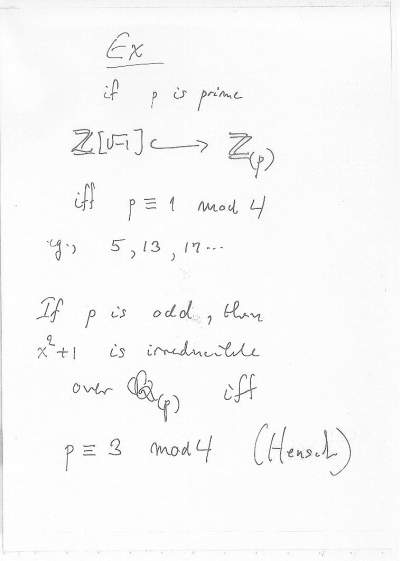 Ex
if p is prime
ℤ[√-1] ↪ ℤ_(p)
iff p ≡ 1 mod 4
e.g., 5, 13, 17...
If p is odd, then
x²+1 is irreducible
over ℚ_(p) iff
p ≡ 3 mod 4 (Hensel)